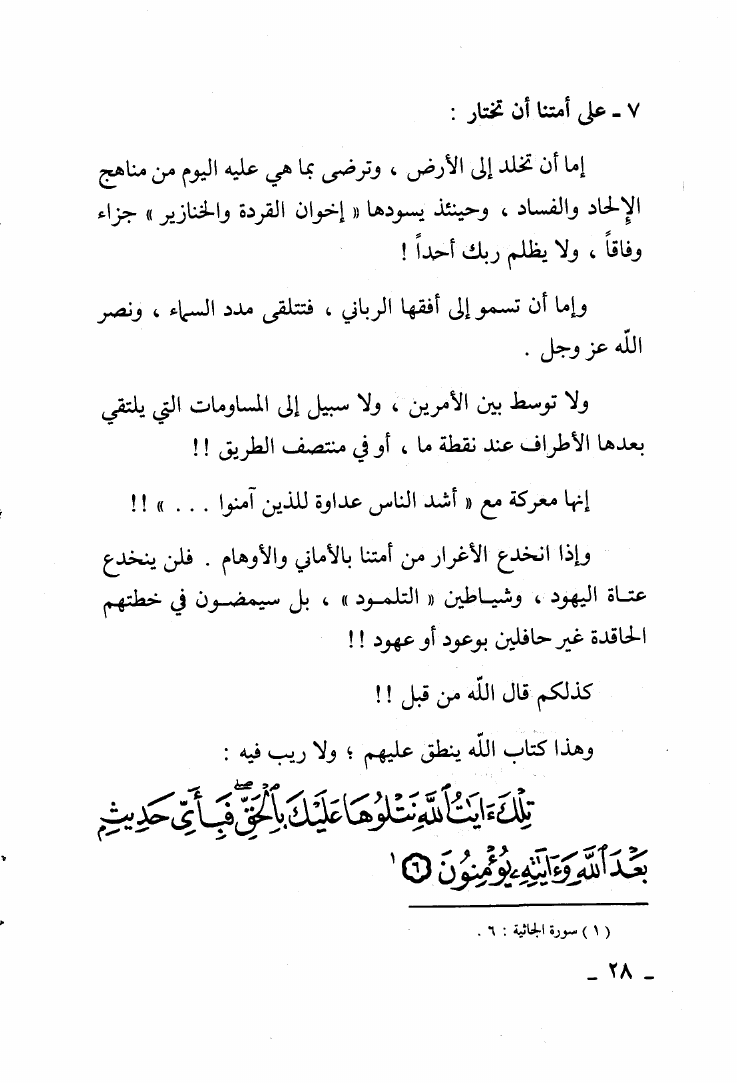 ٧ ـ على أمتنا أن تختار :
إما أن تخلد إلى الأرض ، وترضى بما هي عليه اليوم من مناهج
الإلحاد والفساد ، وحينئذ يسودها « إخوان القردة والخنازير » جزاء
وفاقاً ، ولا يظلم ربك أحداً !
وإما أن تسمو إلى أفقها الرباني ، فتتلقى مدد السماء ، ونصر
اللّه عز وجل .
ولا توسط بين الأمرين ، ولا سبيل إلى المساومات التي يلتقي
بعدها الأطراف عند نقطة ما ، أو في منتصف الطريق !!
إنها معركة مع « أشد الناس عداوة للذين آمنوا . . . » !!
وإذا انخدع الأغرار من أمتنا بالأماني والأوهام . فلن ينخدع
عتـاة اليهود ، وشيـاطين « التلمـود » ، بل سيمضـون في خطتهم
الحاقدة غير حافلين بوعود أو عهود !!
كذلكم قال اللّه من قبل !!
وهذا كتاب اللّه ينطق عليهم ؛ ولا ريب فيه :
تِلْكَ ءَايَٰتُ ٱللَّهِ نَتْلُوهَا عَلَيْكَ بِٱلْحَقِّۖ فَبِأَىِّ حَدِيثٍۭ
بَعْدَ ٱللَّهِ وَءَايَٰتِهِۦ يُؤْمِنُونَ ٦ ١
( ١ ) سورة الجاثية : ٦ .
ـ ٢٨ ـ